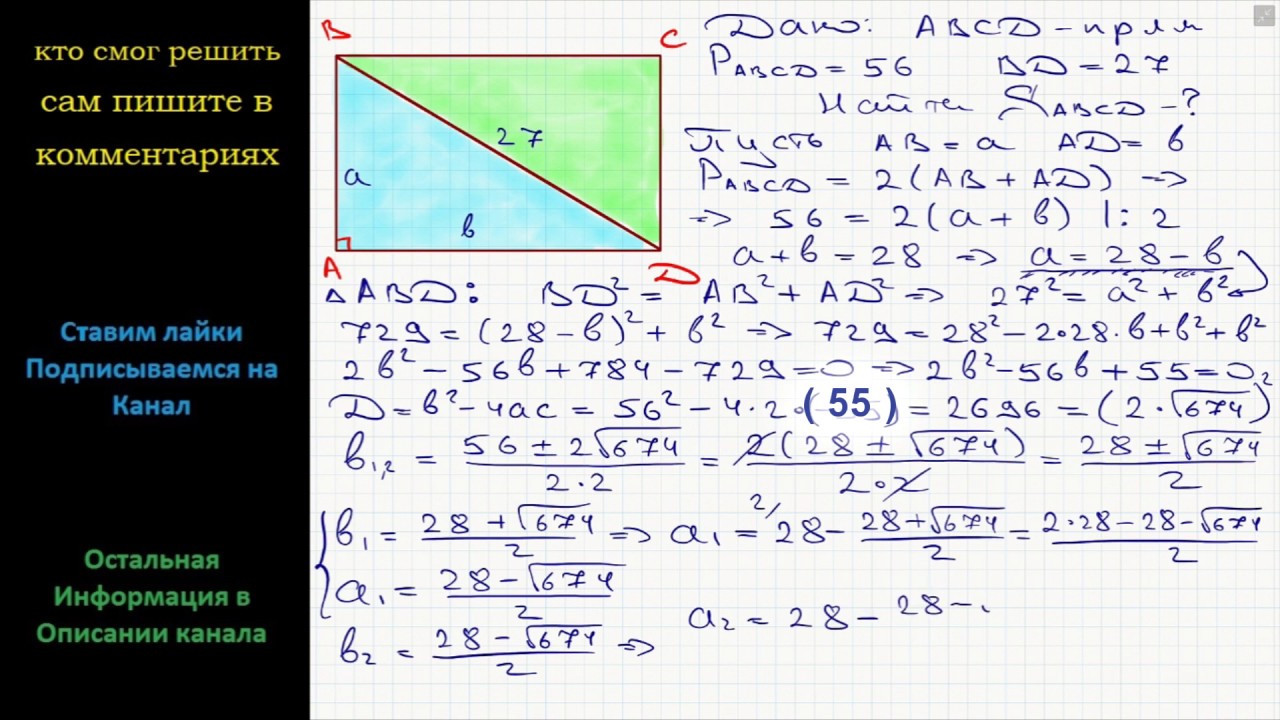 кто смог решить
сам пишите в
комментариях
Ставим лайки
Подписываемся на
Канал
Остальная
Информация в
Описании канала
B
C
27
a
в
A
D
Дано: ABCD - прям
P_ABCD = 56 BD = 27
Найти S_ABCD - ?
Пусть AB = a AD = в
P_ABCD = 2(AB + AD) =>
=> 56 = 2(a + в) |: 2
a + в = 28 => a = 28 - в
△ABD: BD² = AB² + AD² => 27² = a² + в²
729 = (28 - в)² + в² => 729 = 28² - 2·28·в + в² + в²
2в² - 56в + 784 - 729 = 0 => 2в² - 56в + 55 = 0
D = в² - 4ac = 56² - 4·2·( 55 ) = 2696 = (2·√674)²
в₁,₂ = (56 ± 2√674)/(2·2) = 2(28 ± √674)/(2·2) = (28 ± √674)/2
в₁ = (28 + √674)/2 => a₁ = ²/28 - (28 + √674)/2 = (2·28 - 28 - √674)/2
a₁ = (28 - √674)/2
в₂ = (28 - √674)/2 => a₂ = 28 - 28 -